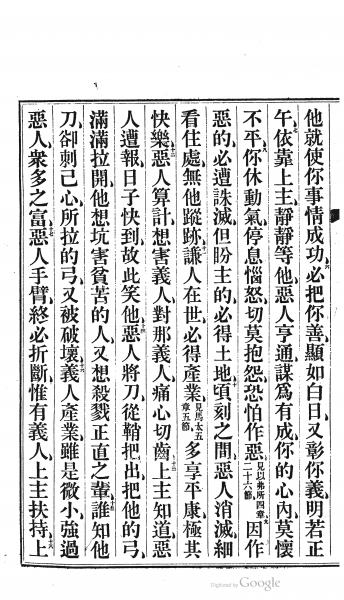 他就使你事情成功六必把你善顯如白日又彰你義明若正
午七依靠上主靜靜等他惡人亨通謀爲有成你的心內莫懷
不平八你休動氣停息惱怒切莫抱怨恐怕作惡見以弗所四章二十六節九因作
惡的必遭誅滅但盼主的必得土地十頃刻之間惡人消滅細
看住處無他蹤跡十一謙人在世必得產業見馬太五章五節多享平康極其
快樂十二惡人算計想害義人對那義人痛心切齒十三上主知道惡
人遭報日子快到故此笑他十四惡人將刀從鞘把出把他的弓
滿滿拉開他想坑害貧苦的人又想殺戮正直之輩十五誰知他
刀卻刺己心所拉的弓又被破壞十六義人產業雖是微小強過
惡人衆多之富十七惡人手臂終必折斷惟有義人上主扶持十八上
Digitized by Google